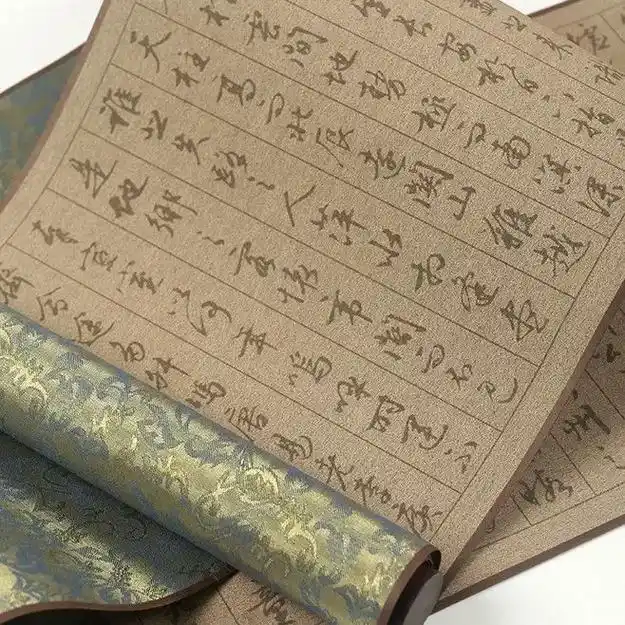 望長安於日下指
於雲間地勢極而南溟深
天柱高而北辰遠關山難越
誰悲失路之人萍水相逢盡
是他鄉之客懷帝閽而不見
奉宣室以何年嗚呼時運不
齊命途多舛馮唐易老李廣